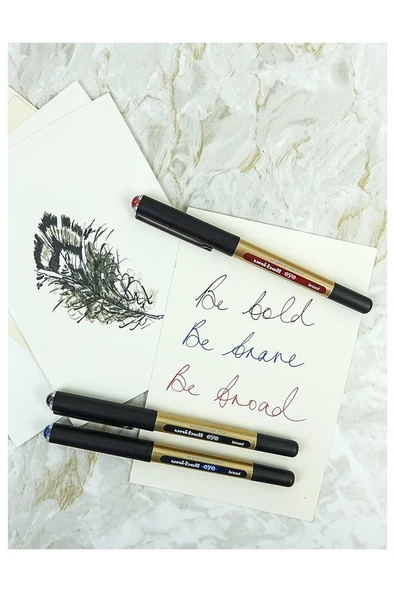 uni-ball eye broad
Be bold
Be brave
Be broad
uni-ball eye broad
uni-ball eye broad